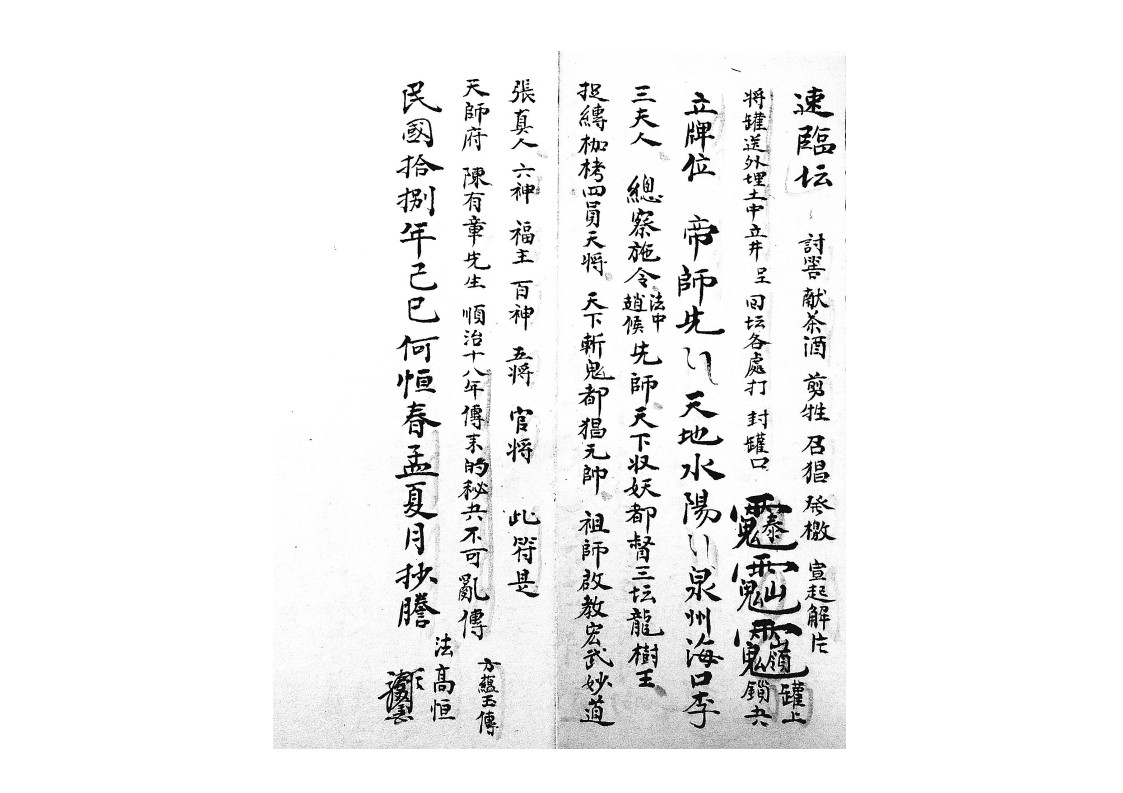 速臨坛 討筶 献茶酒 剪牲 召猖 發檄 宣起解片 罐上
将罐送外埋土中立井 呈 回坛各處打 封罐口 鎖夬
立牌位 帝師先 天地水陽 泉州海口李
三夫人 總察施令 法中趙侯 先師 天下収妖都督三坛龍樹王
捉縳枷栲四員天将 天下斬鬼都猖元帥 祖師啟教宏武妙道
張真人 六神 福主 百神 五将 官将 此符是
天師府 陳有章先生 順治十八年傳来的秘共不可亂傳
方蘊玉傳
民國拾捌年己巳何恒春孟夏月抄謄
法高恒